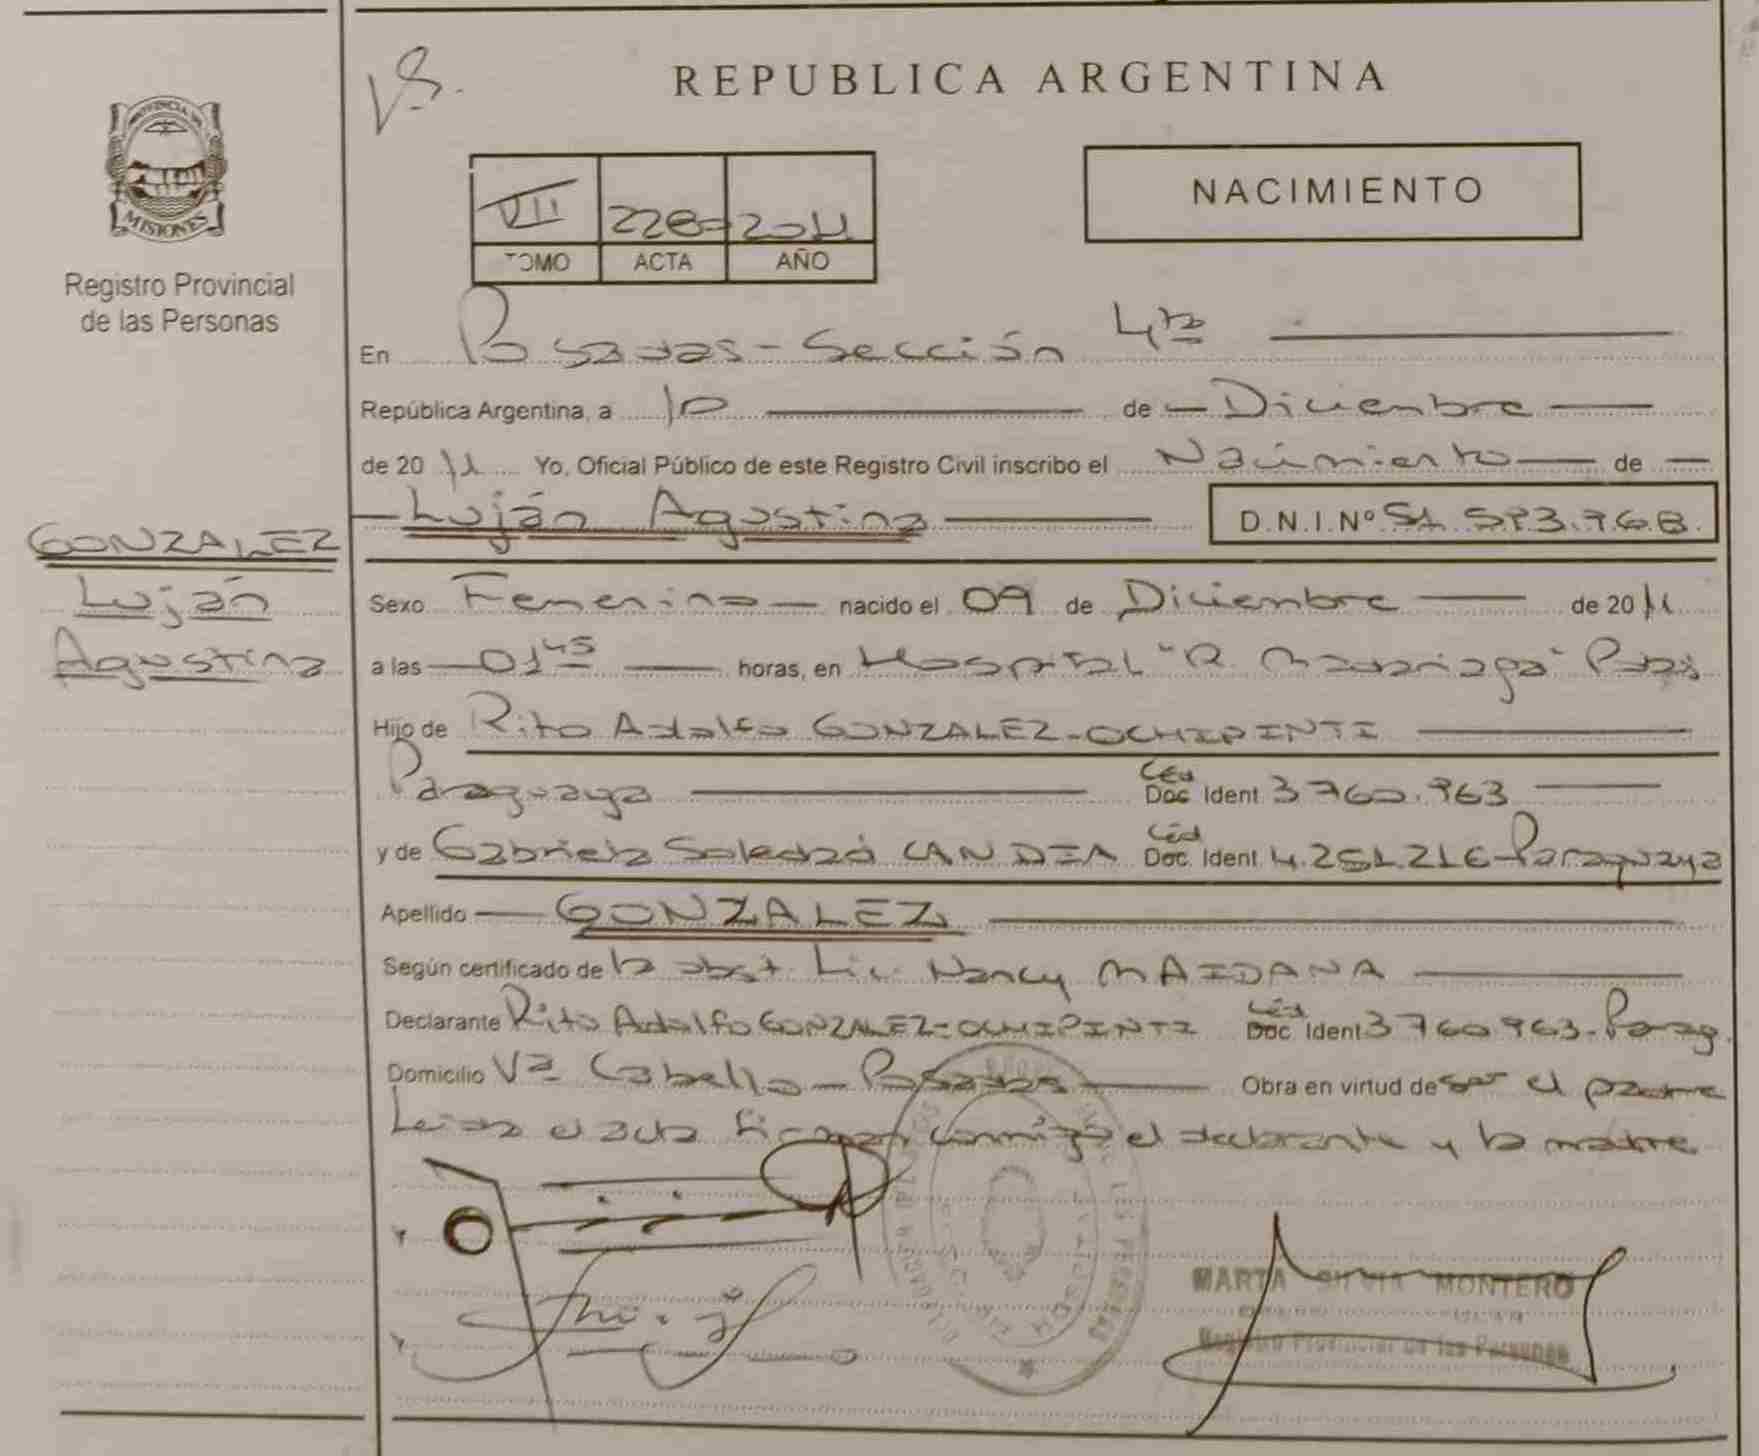 V.S.
REPUBLICA ARGENTINA
NACIMIENTO
VII 228- 2011
TOMO ACTA AÑO
PROVINCIA DE
MISIONES
Registro Provincial
de las Personas
En Posadas - Sección 4ta
República Argentina, a 10 de Diciembre
de 20 11 Yo, Oficial Público de este Registro Civil inscribo el Nacimiento de
Luján Agustina D.N.I.Nº 51.
GONZALEZ
Luján
Agustina
Sexo Femenino nacido el 09 de Diciembre de 20 11
a las 01 45 horas, en Hospital "R. Madariaga" Pdas
Hijo de Rito Adolfo GONZALEZ-OCHIPINTI
Paraguaya Céd Doc Ident 3760.963
y de Gabriela Soledad CANDIA Céd Doc. Ident 4.251.216-Paraguaya
Apellido GONZALEZ
Según certificado de la obst. Lic. Nancy MAIDANA
Declarante Rito Adolfo GONZALEZ-OCHIPINTI Céd Doc Ident 3760963-Parag.
Domicilio Vª Cabello - Posadas Obra en virtud de ser el padre
Leida el acta firman conmigo el declarante y la madre
MARTA SILVIA MONTERO
Registro Provincial de las Personas